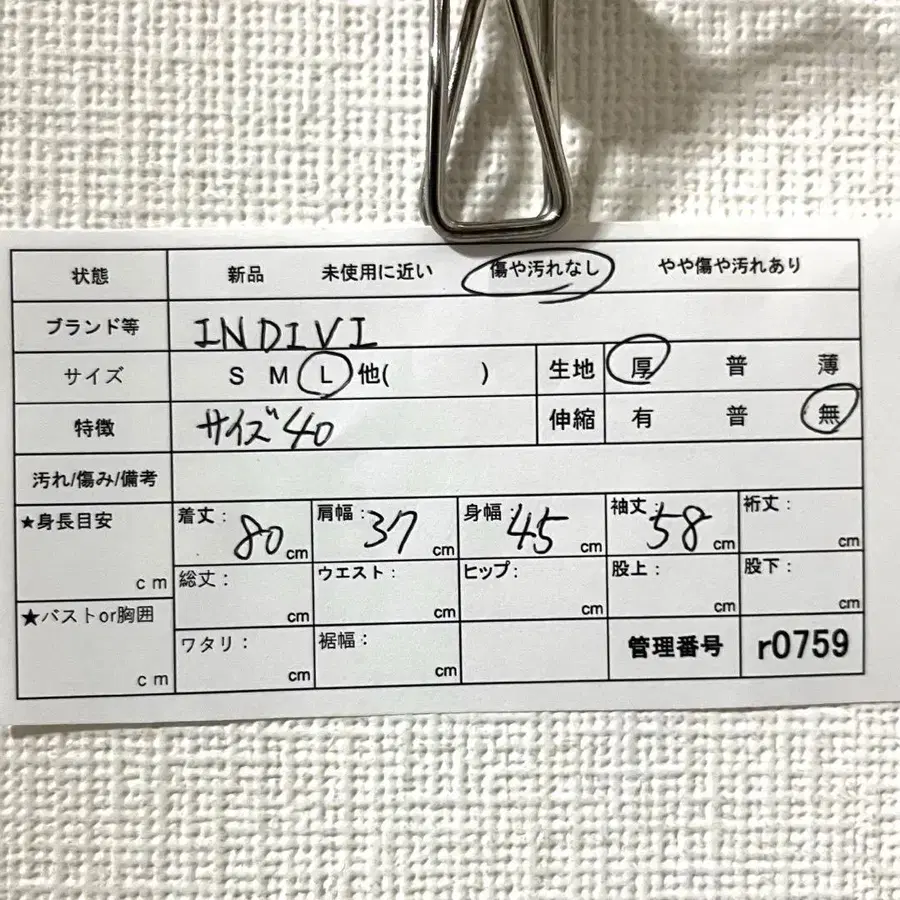 状態 新品 未使用に近い 傷や汚れなし やや傷や汚れあり
ブランド等 INDIVI
サイズ S M L 他( ) 生地 厚 普 薄
特徴 サイズ40 伸縮 有 普 無
汚れ/傷み/備考
★身長目安 cm 着丈: 80 cm 肩幅: 37 cm 身幅: 45 cm 袖丈: 58 cm 裄丈: cm
総丈: cm ウエスト: cm ヒップ: cm 股上: cm 股下: cm
★バストor胸囲 cm ワタリ: cm 裾幅: cm 管理番号 r0759